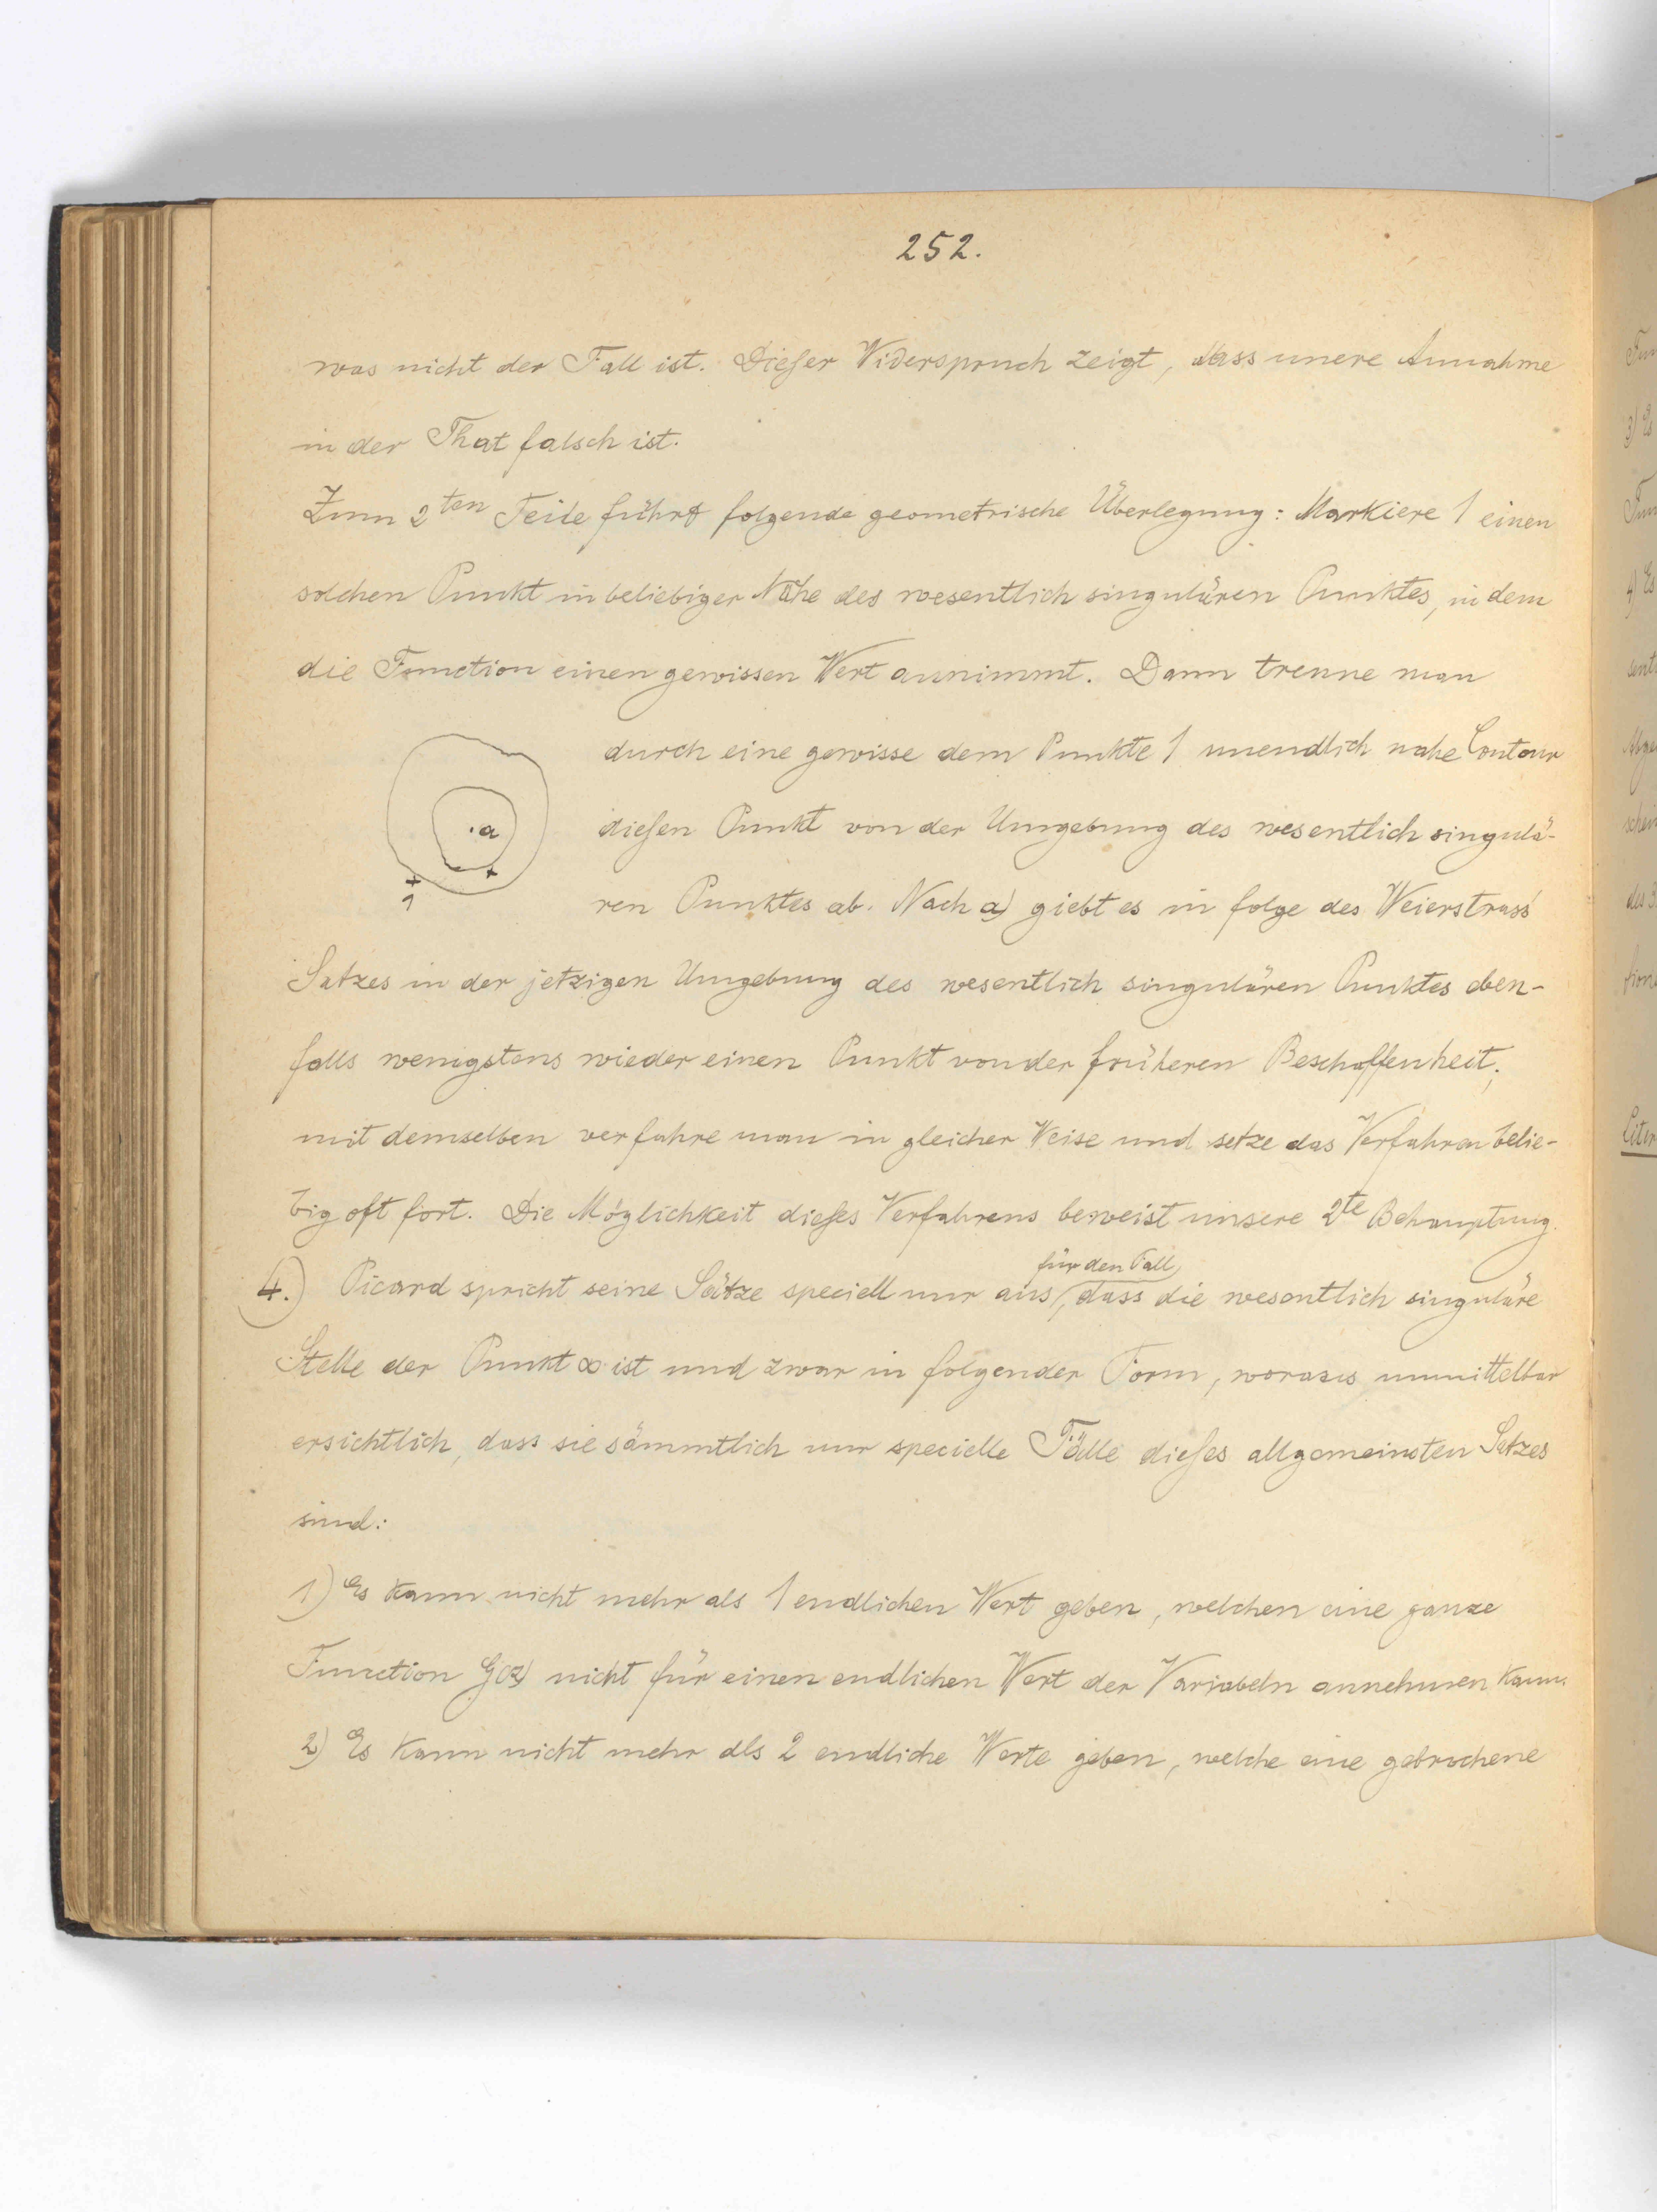 252.
was nicht der Fall ist. Dieser Widerspruch zeigt, dass unere Annahme
in der That falsch ist.
Zum 2ten Teile führt folgende geometrische Überlegung: Markiere 1 einen
solchen Punkt in beliebiger Nähe des wesentlich singulären Punktes, in dem
die Function einen gewissen Wert annimmt. Dann trenne man
durch eine gewisse dem Punkte 1 unendlich nahe Contour
diesen Punkt von der Umgebung des wesentlich singulä-
ren Punktes ab. Nach a) giebt es in folge des Weierstrass'
Satzes in der jetzigen Umgebung des wesentlich singulären Punktes eben-
falls wenigstens wieder einen Punkt von der früheren Beschaffenheit;
mit demselben verfahre man in gleicher Weise und setze das Verfahren belie-
big oft fort. Die Möglichkeit dieses Verfahrens beweist unsere 2te Behauptung.
4.) Picard spricht seine Sätze speciell nur aus für den Fall, dass die wesentlich singuläre
Stelle der Punkt ∞ ist und zwar in folgender Form, woraus unmittelbar
ersichtlich, dass sie sämmtlich nur specielle Fälle dieses allgemeinsten Satzes
sind:
1) Es kann nicht mehr als 1 endlichen Wert geben, welchen eine ganze
Function G(z) nicht für einen endlichen Wert der Variabeln annehmen kann.
2) Es kann nicht mehr als 2 endliche Werte geben, welche eine gebrochene
·a
+
+
1